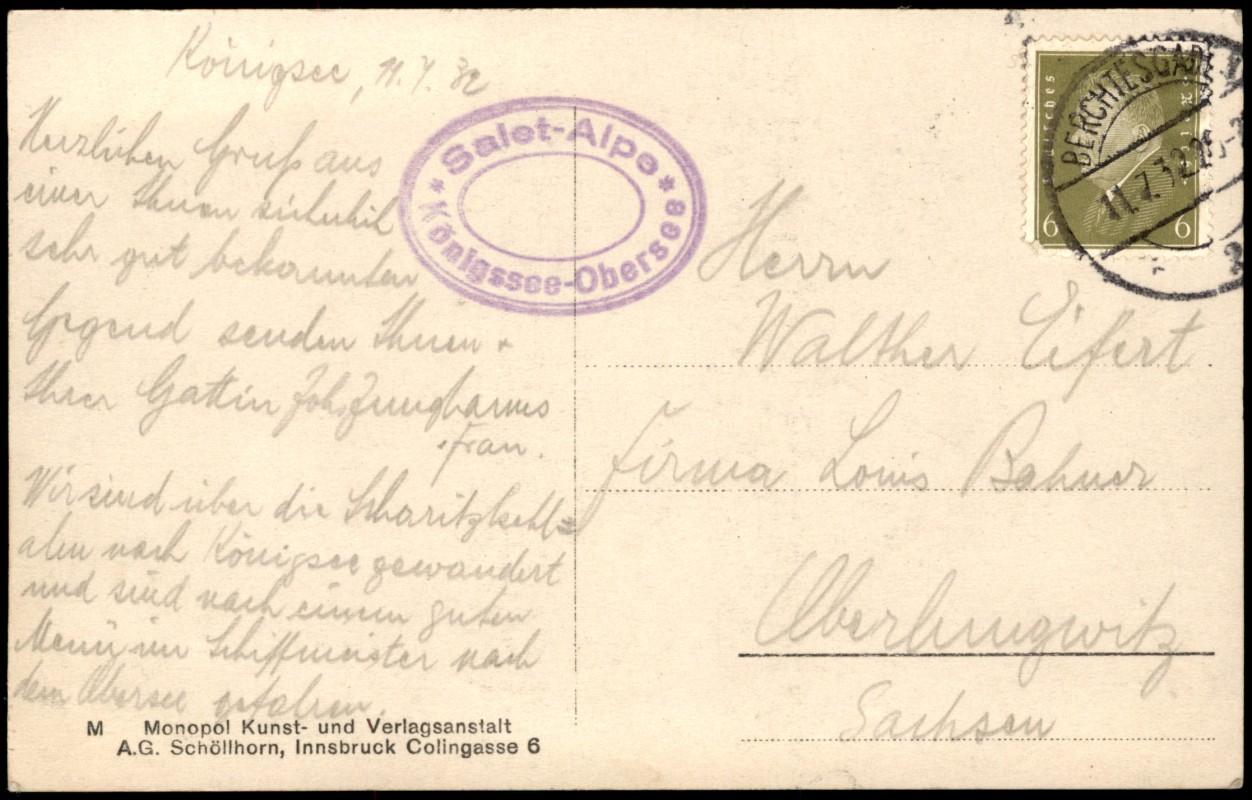 Königsee, 11.7.32
Herzlichen Gruß aus
einer Ihnen sicherlich
sehr gut bekannten
Gegend senden Ihnen +
Ihrer Gattin Joh. Junghanns
+ Frau.
Wir sind über die Scharitzkehl=
alm nach Königsee gewandert
und sind nach einem guten
Menü im Schiffmeister nach
dem Obersee gefahren.
M Monopol Kunst- und Verlagsanstalt
A.G. Schöllhorn, Innsbruck Colingasse 6
* Salet-Alpe *
Königssee-Obersee
Deutsches Reich
6 6
BERCHTESGADEN
11.7.32.
2
Herrn
Walther Eifert
Firma Louis Bahner
Oberlungwitz
Sachsen